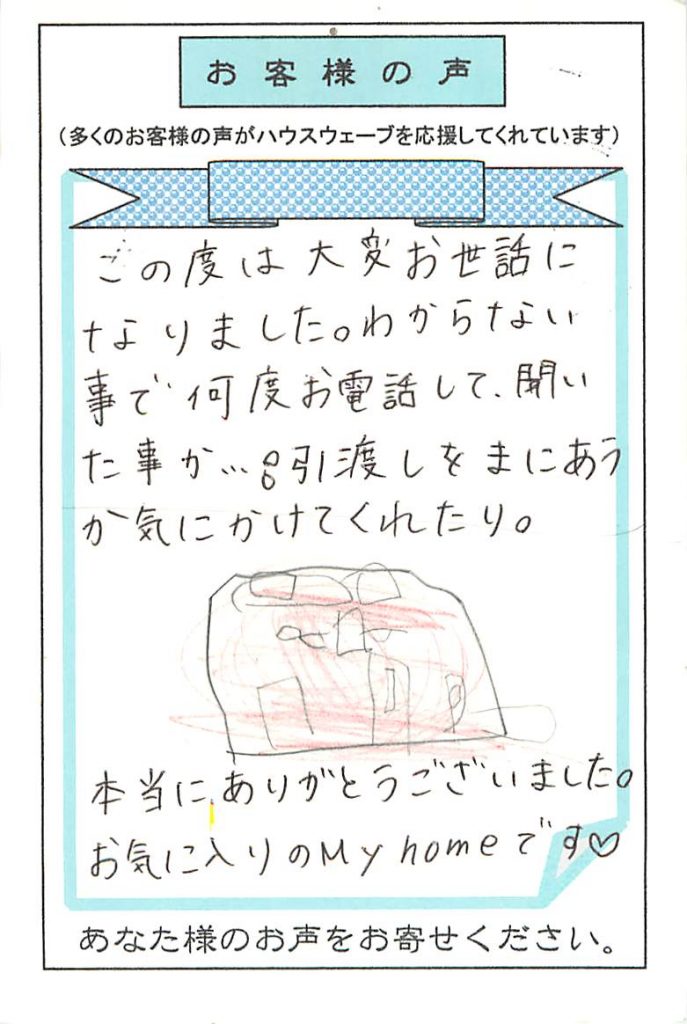 お客様の声
(多くのお客様の声がハウスウェーブを応援してくれています)
この度は大変お世話に
なりました。わからない
事で何度お電話して、聞い
た事か…。引渡しをまにあう
か気にかけてくれたり。
本当にありがとうございました。
お気に入りのMy homeです♡
あなた様のお声をお寄せください。